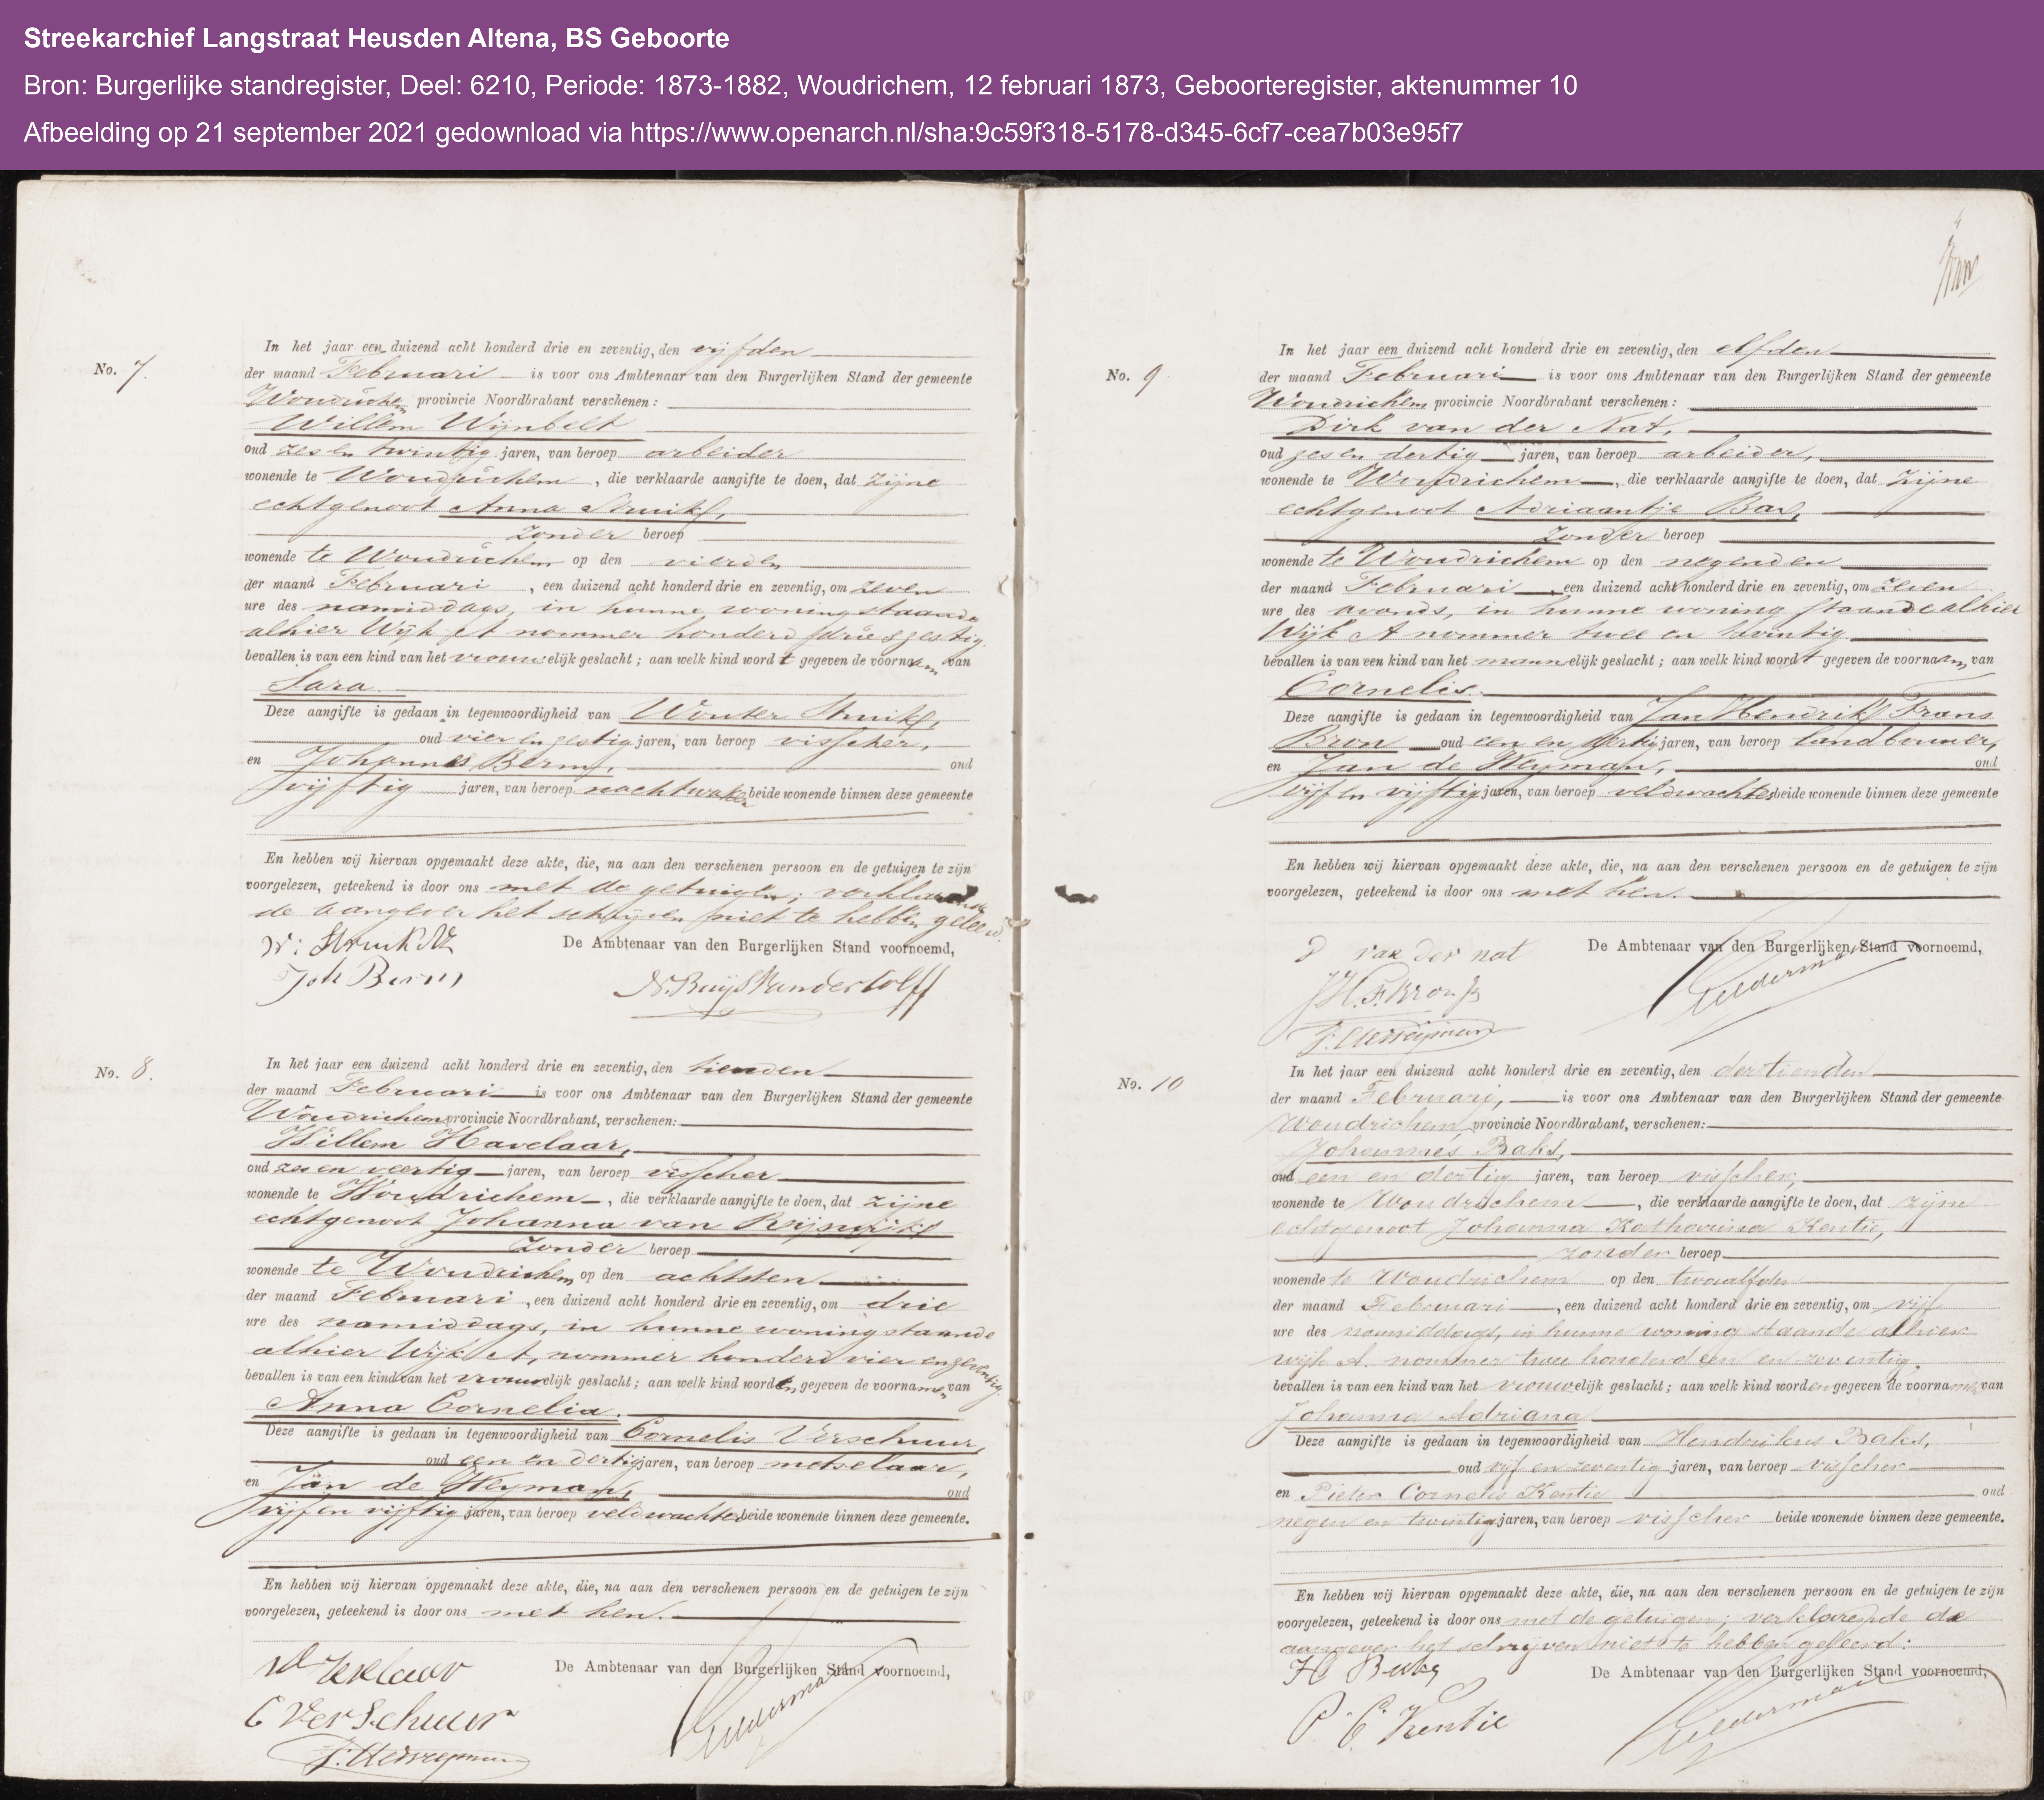 Streekarchief Langstraat Heusden Altena, BS Geboorte
Bron: Burgerlijke standregister, Deel: 6210, Periode: 1873-1882, Woudrichem, 12 februari 1873, Geboorteregister, aktenummer 10
Afbeelding op 21 september 2021 gedownload via https://www.openarch.nl/sha:9c59f318-5178-d345-6cf7-cea7b03e95f7
No. 7.
In het jaar een duizend acht honderd drie en zeventig, den vijfden
der maand Februari is voor ons Ambtenaar van den Burgerlijken Stand der gemeente
Woudrichem provincie Noordbrabant verschenen:
Willem Wijnbelt
oud zes en twintig jaren, van beroep arbeider
wonende te Woudrichem, die verklaarde aangifte te doen, dat zijne
echtgenoot Anna Struik,
zonder beroep
wonende te Woudrichem op den vierden
der maand Februari, een duizend acht honderd drie en zeventig, om zeven
ure des namiddags, in hunne woning staande
alhier Wijk A nommer honderd drie & zestig
bevallen is van een kind van het vrouwelijk geslacht; aan welk kind wordt gegeven de voornaam van
Sara
Deze aangifte is gedaan in tegenwoordigheid van Wouter Struik,
oud vier en zestig jaren, van beroep visscher,
en Johannes oud
vijftig jaren, van beroep nachtwaker beide wonende binnen deze gemeente
En hebben wij hiervan opgemaakt deze akte, die, na aan den verschenen persoon en de getuigen te zijn
voorgelezen, geteekend is door ons met de getuigen; verklarende
de aangever het schrijven niet te hebben geleerd.
De Ambtenaar van den Burgerlijken Stand voornoemd,
No. 8.
In het jaar een duizend acht honderd drie en zeventig, den tienden
der maand Februari is voor ons Ambtenaar van den Burgerlijken Stand der gemeente
Woudrichem provincie Noordbrabant, verschenen:
Willem Havelaar,
oud zes en veertig jaren, van beroep visscher
wonende te Woudrichem, die verklaarde aangifte te doen, dat zijne
echtgenoot Johanna van Rijswijk
zonder beroep
wonende te Woudrichem op den achtsten
der maand Februari, een duizend acht honderd drie en zeventig, om drie
ure des namiddags, in hunne woning staande
alhier Wijk A, nommer honderd vier en zeventig
bevallen is van een kind van het vrouwelijk geslacht; aan welk kind worden gegeven de voornamen van
Anna Cornelia.
Deze aangifte is gedaan in tegenwoordigheid van Cornelis Verschuur,
oud een en dertig jaren, van beroep metselaar,
en Jan de Weyman, oud
vijf en vijftig jaren, van beroep veldwachter beide wonende binnen deze gemeente.
En hebben wij hiervan opgemaakt deze akte, die, na aan den verschenen persoon en de getuigen te zijn
voorgelezen, geteekend is door ons met hen.
De Ambtenaar van den Burgerlijken Stand voornoemd,
C Verschuur
Gildermans
No. 9
In het jaar een duizend acht honderd drie en zeventig, den elfden
der maand Februari is voor ons Ambtenaar van den Burgerlijken Stand der gemeente
Woudrichem provincie Noordbrabant verschenen:
Dirk van der Nat,
oud zes en dertig jaren, van beroep arbeider,
wonende te Woudrichem, die verklaarde aangifte te doen, dat zijne
echtgenoot Adriaantje Bax,
zonder beroep
wonende te Woudrichem op den negenden
der maand Februari, een duizend acht honderd drie en zeventig, om zeven
ure des avonds, in hunne woning staande alhier
Wijk A nommer twee en twintig
bevallen is van een kind van het mannelijk geslacht; aan welk kind wordt gegeven de voornaam van
Cornelis.
Deze aangifte is gedaan in tegenwoordigheid van Jan Hendrik Frans
Bron oud een en jaren, van beroep landbouwer,
en Jan de Weyman, oud
vijf en vijftig jaren, van beroep veldwachter beide wonende binnen deze gemeente
En hebben wij hiervan opgemaakt deze akte, die, na aan den verschenen persoon en de getuigen te zijn
voorgelezen, geteekend is door ons met hen.
D van der nat
De Ambtenaar van den Burgerlijken Stand voornoemd,
No. 10
In het jaar een duizend acht honderd drie en zeventig, den dertienden
der maand Februarij, is voor ons Ambtenaar van den Burgerlijken Stand der gemeente
Woudrichem, provincie Noordbrabant, verschenen:
Johannes Baks,
oud een en dertig jaren, van beroep visscher,
wonende te Woudrichem, die verklaarde aangifte te doen, dat zijne
echtgenoot Johanna Katharina Kentie,
zonder beroep
wonende te Woudrichem op den twaalfden
der maand Februari, een duizend acht honderd drie en zeventig, om vijf
ure des namiddags, in hunne woning staande alhier
wijk A. nommer twee honderd een en zeventig.
bevallen is van een kind van het vrouwelijk geslacht; aan welk kind worden gegeven de voornamen van
Johanna Adriana
Deze aangifte is gedaan in tegenwoordigheid van Hendrikus Baks,
oud vijf en zeventig jaren, van beroep visscher
en Pieter Cornelis Kentie oud
negen en twintig jaren, van beroep visscher beide wonende binnen deze gemeente.
En hebben wij hiervan opgemaakt deze akte, die, na aan den verschenen persoon en de getuigen te zijn
voorgelezen, geteekend is door ons met de getuigen; verklarende de
aangever het schrijven niet te hebben geleerd:
De Ambtenaar van den Burgerlijken Stand voornoemd,
P. C. Kentie